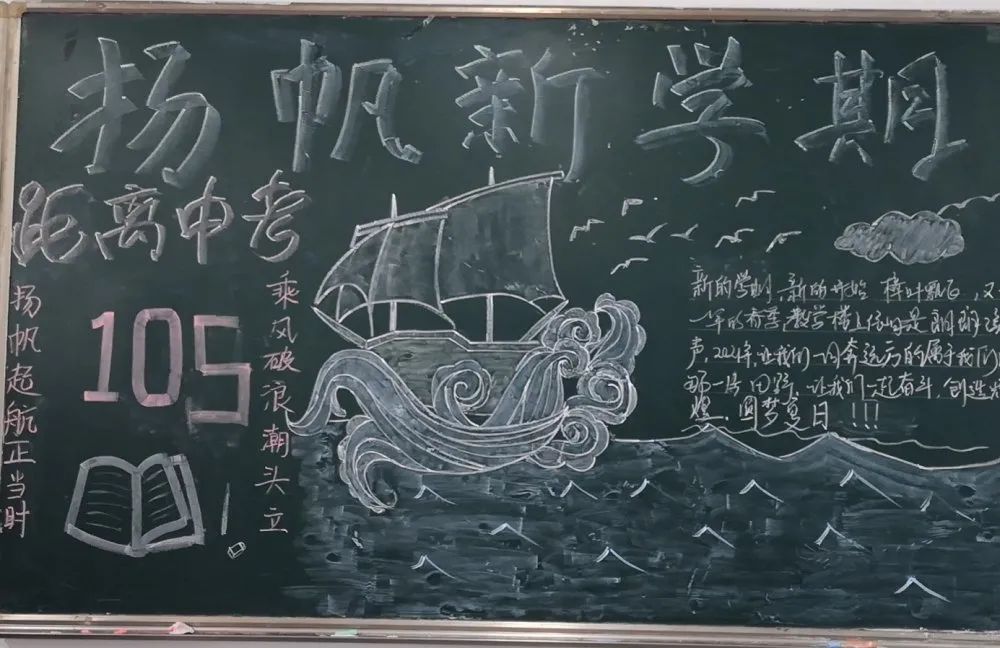 扬帆新学期
距离中考
105
扬帆起航正当时
乘风破浪潮头立
新的学期，新的开始
一年的春季，教学楼上
声，2024年，让我们一同奔远方的属于我们
那一片田野，让我们一起奋斗，创造
圆梦夏日！！！